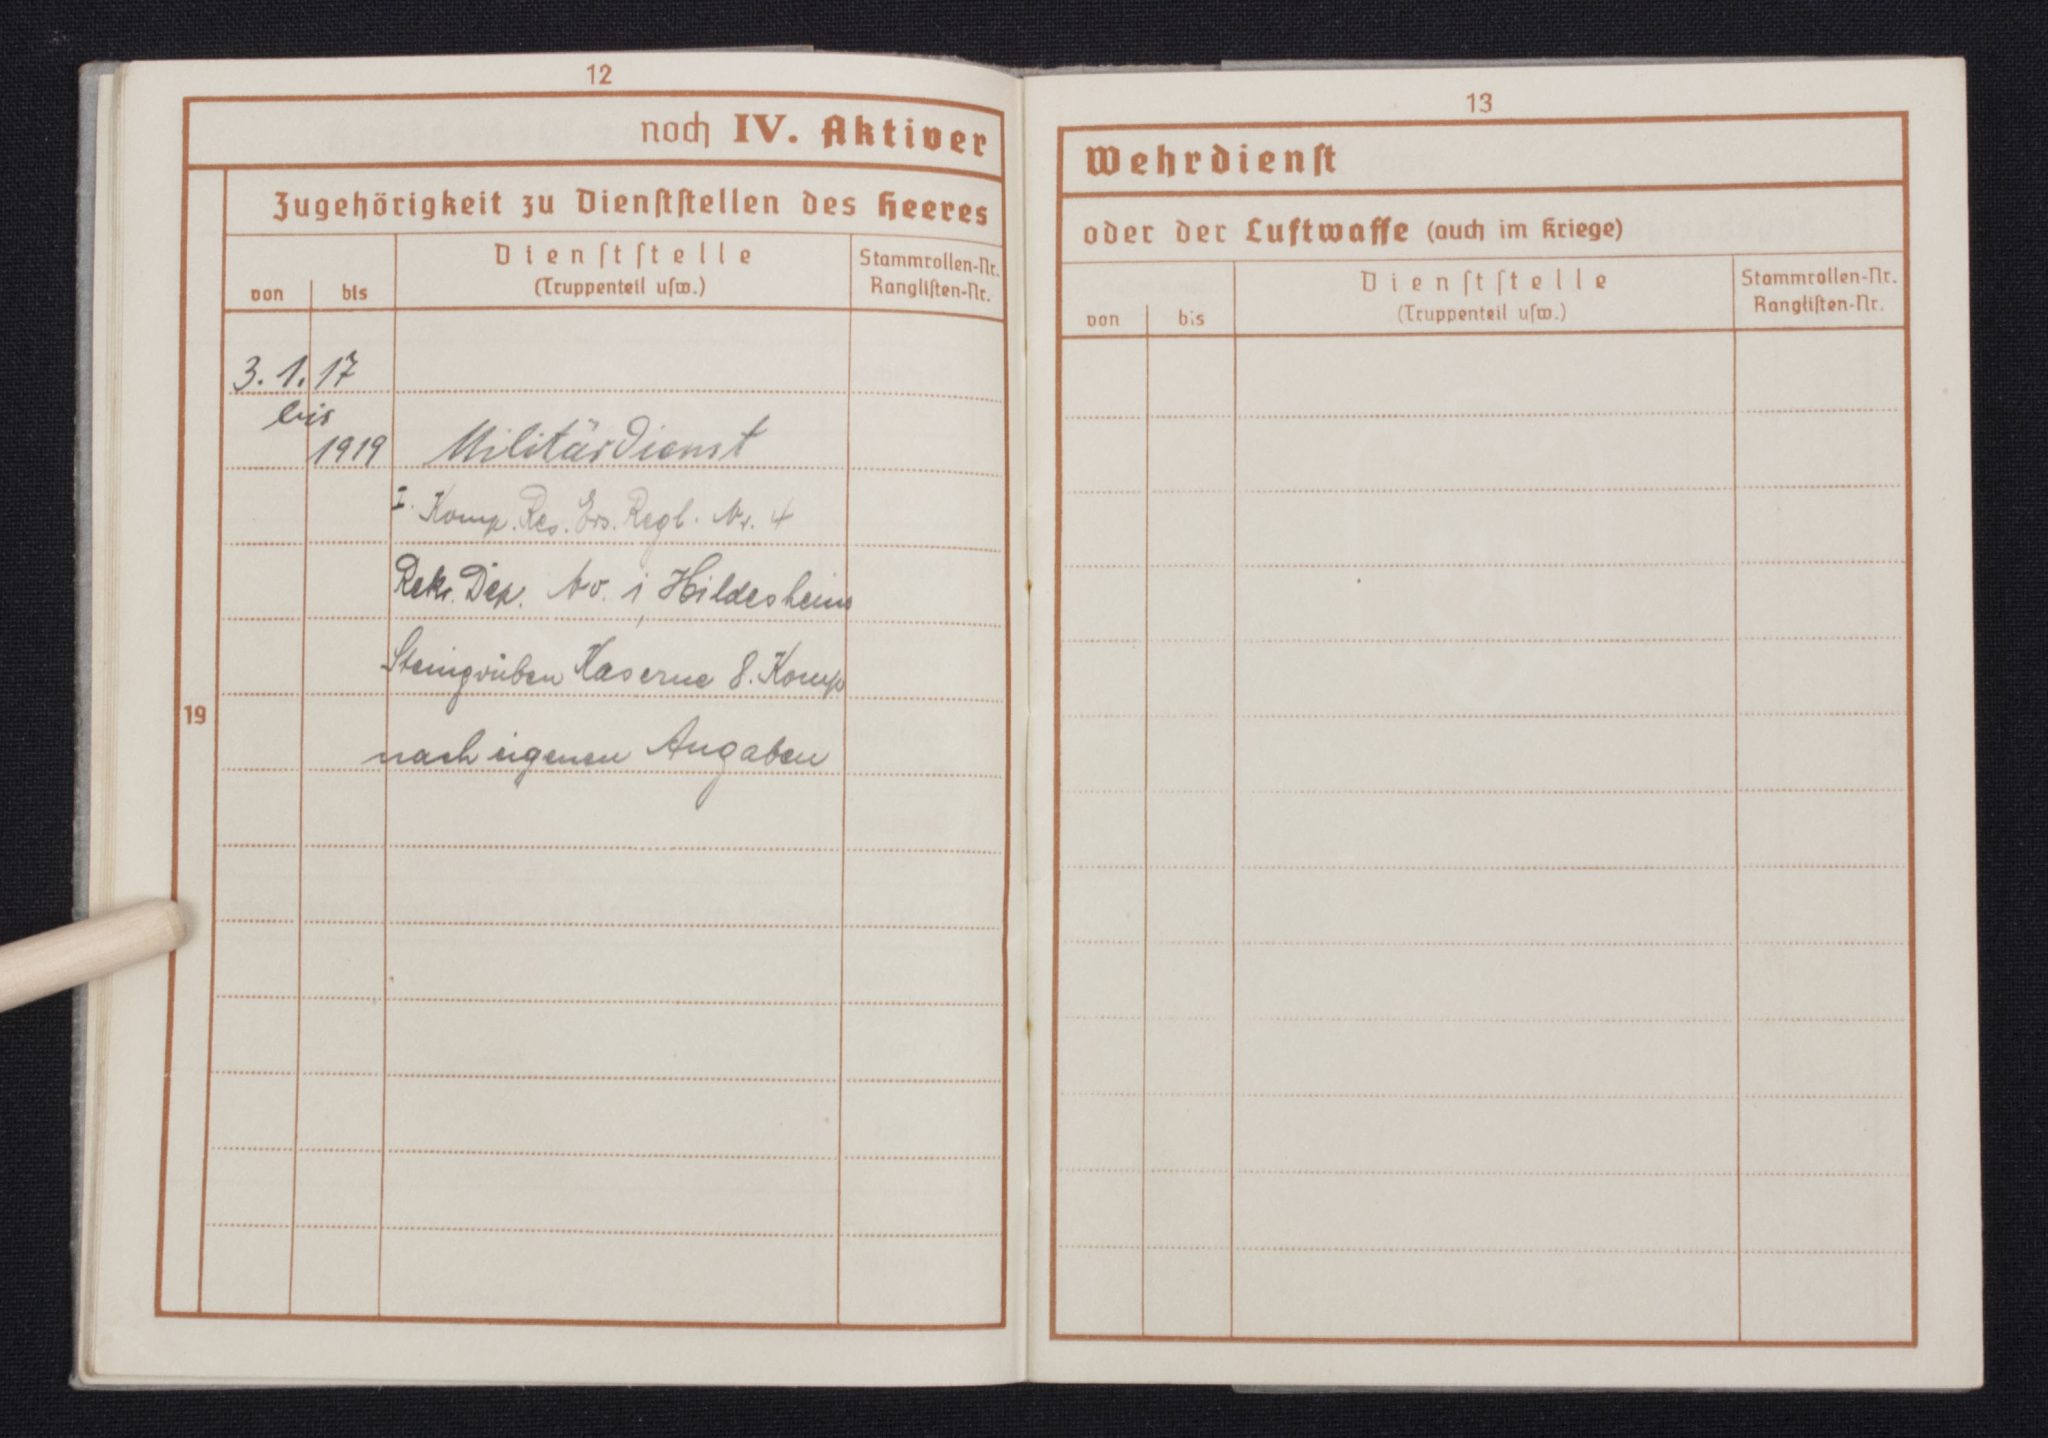 12
noch IV. Aktiver
Zugehörigkeit zu Dienststellen des Heeres
von
bis
Dienststelle
(Truppenteil usw.)
Stammrollen-Nr.
Ranglisten-Nr.
3. 1. 17
bis
1919 Militärdienst
I. Komp. Res. Ers. Regt. Nr. 4
Rekr. Dep. i Hildesheim
Steingruben Kaserne 8. Komp
19
nach eigenen Angaben
13
Wehrdienst
oder der Luftwaffe (auch im Kriege)
von
bis
Dienststelle
(Truppenteil usw.)
Stammrollen-Nr.
Ranglisten-Nr.